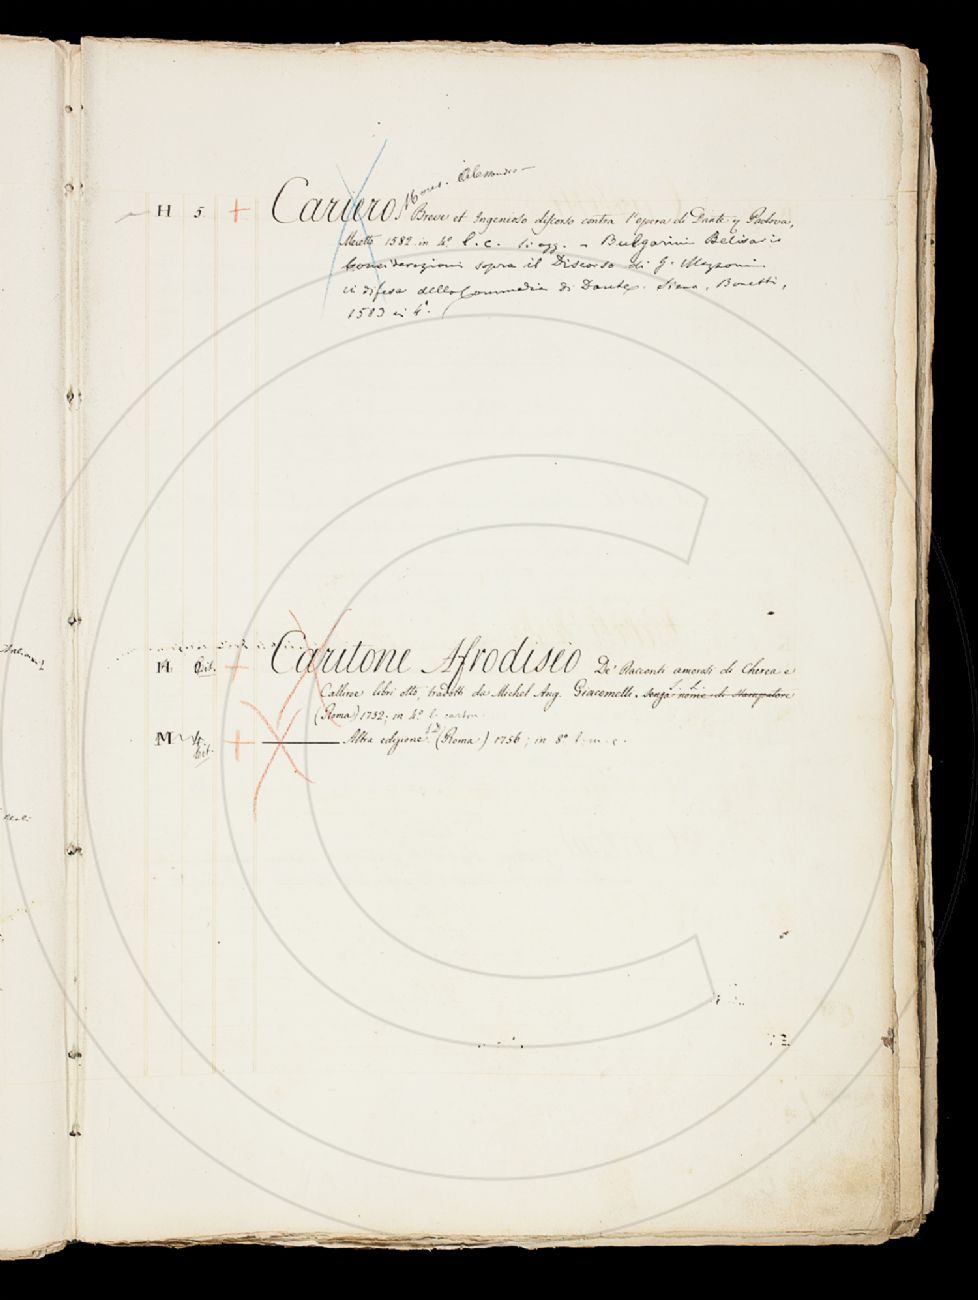 H 5 + Cariero Mons. Alessandro
Breve et Ingenioso discorso contra l'opera di Dante. Padova,
Meietti 1582 in 4° l. c. Si agg. = Bulgarini Belisario
Considerazioni sopra il Discorso di G. Mazzoni
in difesa della Commedia di Dante. Siena, Bonetti,
1583 in 4°.
H bil. + Caritone Afrodiseo De' Racconti amorosi di Cherea e
Calliroe libri otto, tradotti da Michel Ang. Giacomelli. senza nome di stampatore
(Roma) 1752; in 4°
M 4 bil. + Altra edizione (Roma) 1756; in 8° l. m. c.